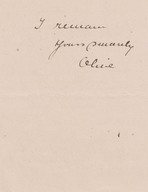 I remain
Yours sincerely
Olive